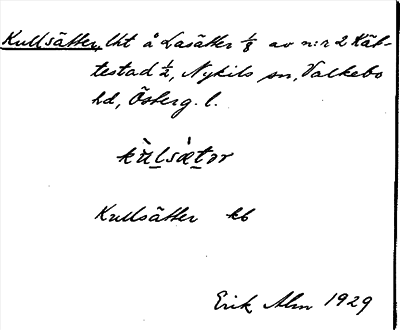 Kullsätter, lht å Lasätter 1/8 av n:r 2 Käb-
testad 1/2, Nykils sn, Valkebo
hd, Österg. l.
Kullsätter kb
Erik Alm 1929